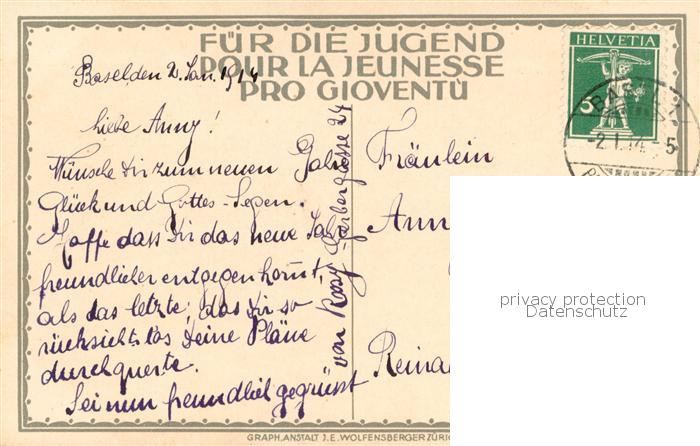 FÜR DIE JUGEND
POUR LA JEUNESSE
PRO GIOVENTÙ
HELVETIA
5
Basel den 2. Jan. 1914
Liebe Anny!
Wünsche Dir zum neuen Jahr
Glück und Gottes-Segen.
Hoffe dass Dir das neue Jahr
freundlicher entgegen kommt,
als das letzte, das Dir so
rücksichtslos Deine Pläne
durchquerte.
Sei nun freundlich gegrüsst
von Rosy Gerbergasse 24
Fräulein
Ann
Reina
privacy protection
Datenschutz
GRAPH. ANSTALT J.E. WOLFENSBERGER ZÜRI